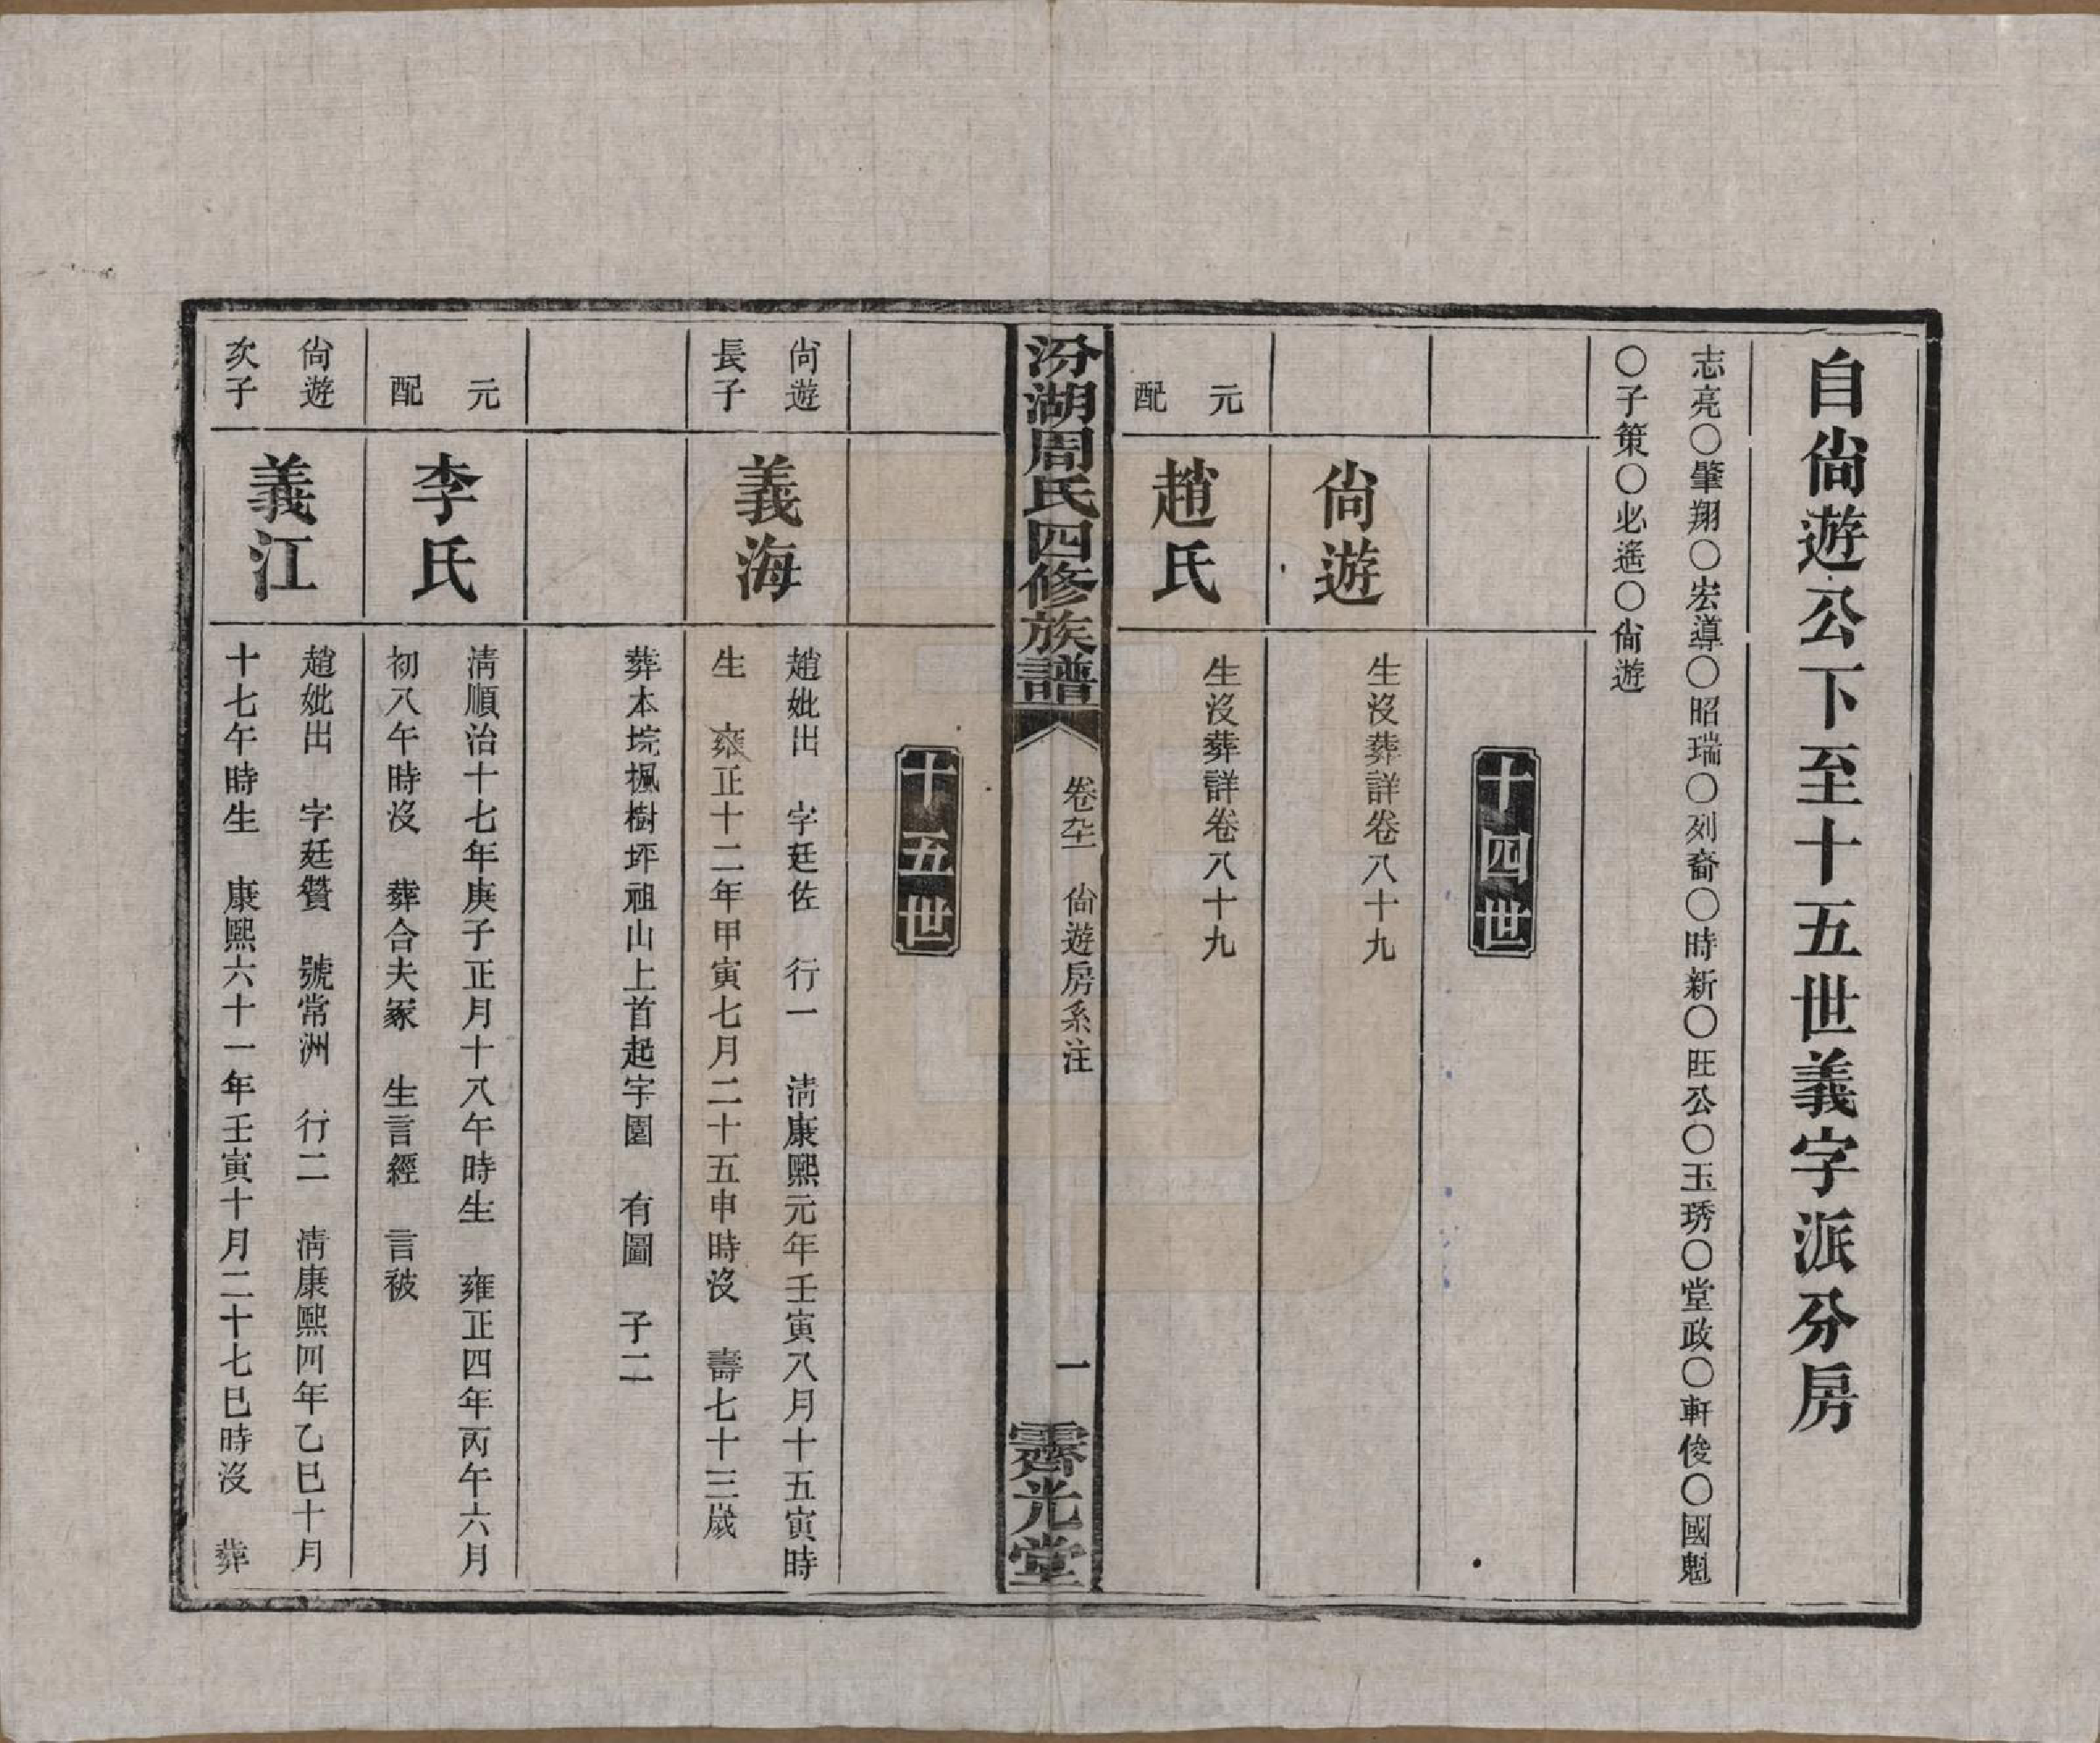 自尙遊公下至十五世義字派分房
志亮〇肇翔〇宏導〇昭瑞〇列裔〇時新〇旺公〇玉琇〇堂政〇軒俊〇國魁
〇子策〇必遙〇尙遊
十四世
尙遊
生沒葬詳卷八十九
元配
趙氏
生沒葬詳卷八十九
汾湖周氏四修族譜
卷九十一 尙遊房系注
一
霽光堂
十五世
尙遊
長子
義海
趙妣出 字廷佐 行一 淸康熙元年壬寅八月十五寅時
生 雍正十二年甲寅七月二十五申時沒 壽七十三歲
葬本垸楓樹坪祖山上首起字園 有圖 子二
元配
李氏
淸順治十七年庚子正月十八午時生 雍正四年丙午六月
初八午時沒 葬合夫冢 生言經 言被
尙遊
次子
義江
趙妣出 字廷贊 號常洲 行二 淸康熙四年乙巳十月
十七午時生 康熙六十一年壬寅十月二十七巳時沒 葬